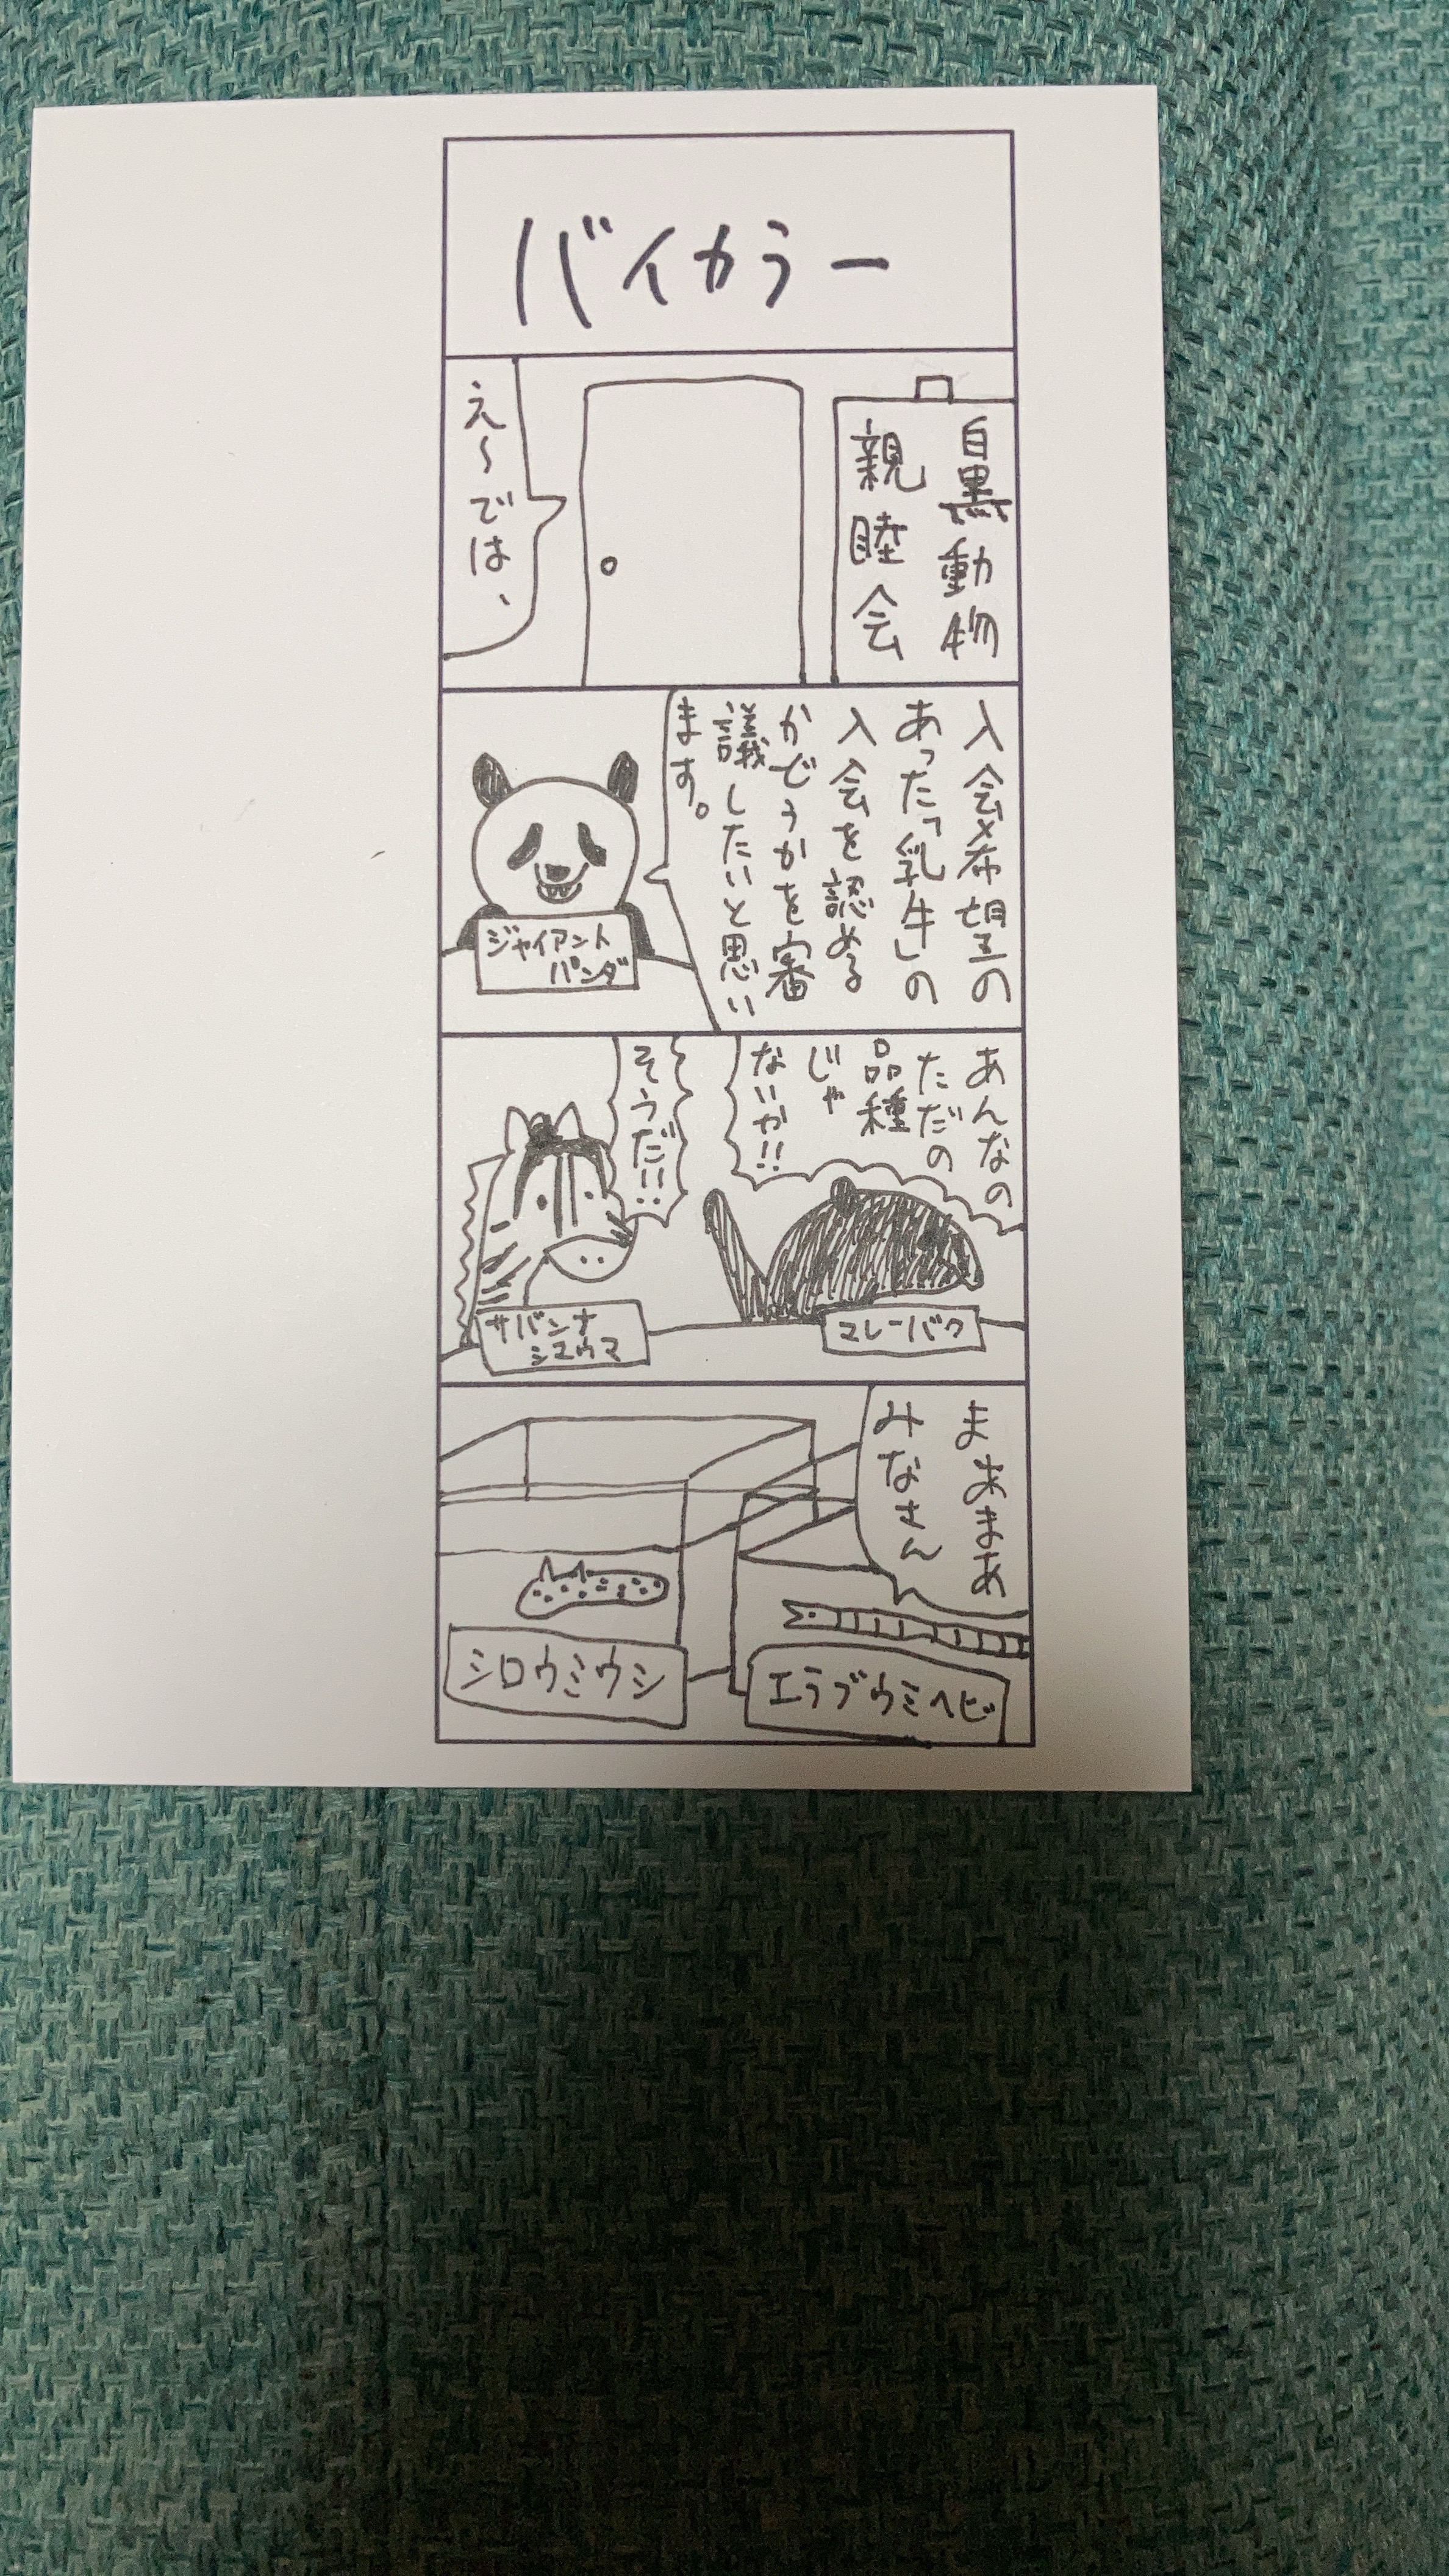 バイカラー
白黒動物
親睦会
え〜では、
入会希望の
あった「乳牛」の
入会を認める
かどうかを審
議したいと思い
ます。
ジャイアント
パンダ
あんなの
ただの
品種
じゃ
ないか!!
マレーバク
そうだ!!
サバンナ
シマウマ
まあまあ
みなさん
エラブウミヘビ
シロウミウシ